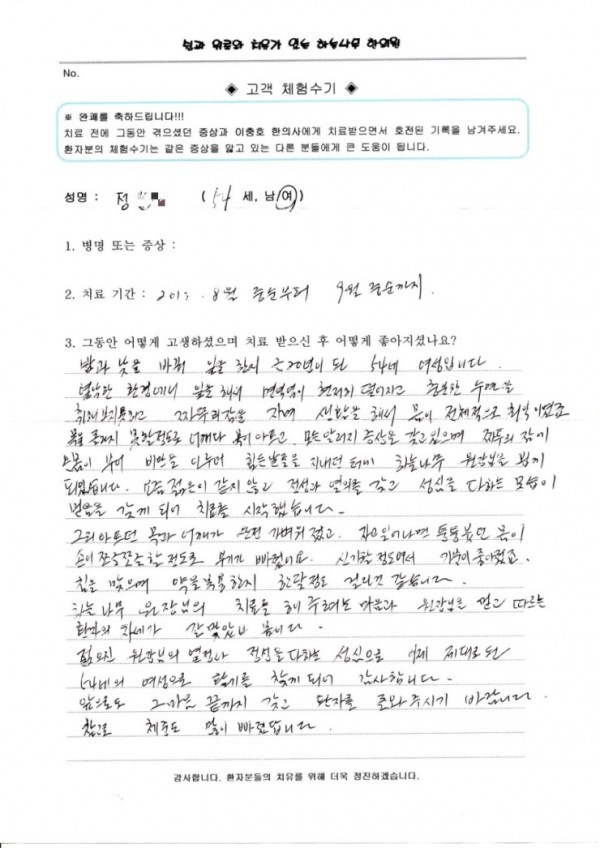 No.
◈ 고객 체험수기 ◈
※ 완쾌를 축하드립니다!!!
치료 전에 그동안 겪으셨던 증상과 이충호 한의사에게 치료받으면서 호전된 기록을 남겨주세요.
환자분의 체험수기는 같은 증상을 앓고 있는 다른 분들에게 큰 도움이 됩니다.
성명 : 정 ( 54 세, 남 여 )
1. 병명 또는 증상 :
2. 치료 기간 : 8월 중순부터 9월 중순까지.
3. 그동안 어떻게 고생하셨으며 치료 받으신 후 어떻게 좋아지셨나요?
밤과 낮을 바꿔 일을 한지 근 20년이 된 54세 여성입니다.
열남한 환경에서 일을 해서 면역력이 현저히 떨어지고 충분한 수면을
취해보지 못하고 2~3시간 자며 생활을 해서 몸이 전체적으로
못할 정도로 어깨와 목이 아프고, 모든 알러지 증상을 갖고 있으며
온몸이 부어 비만을 이루어 힘든 날들을 지내던 터에 하늘나무 원장님을 뵙게
되었습니다. 요즘 젊은이 같지 않고 정성과 열의를 갖고 성심을 다하는 모습에
믿음을 갖게 되어 치료를 시작했습니다.
그리 아프던 목과 어깨가 가벼워졌고, 자고 일어나면 퉁퉁 붓던 몸이
손이 쪼글쪼글할 정도로 부기가 빠졌어요. 신기할 정도여서 기분이 좋아졌죠.
침을 맞으며 약을 복용한지 한달 정도 걸린것 같습니다.
하늘나무 원장님의 치료를 해 주려는 마음과 원장님을 믿고 따르는
환자의 자세가 잘 맞았나 봅니다.
젊으신 원장님의 열정과 정성을 다하는 성심으로 이제 제대로 된
54세의 여성으로 활기를 찾게 되어 감사합니다.
앞으로도 그 마음 끝까지 갖고 환자를 돌봐주시기 바랍니다.
참고로 체중도 많이 빠졌답니다.
감사합니다. 환자분들의 치유를 위해 더욱 정진하겠습니다.